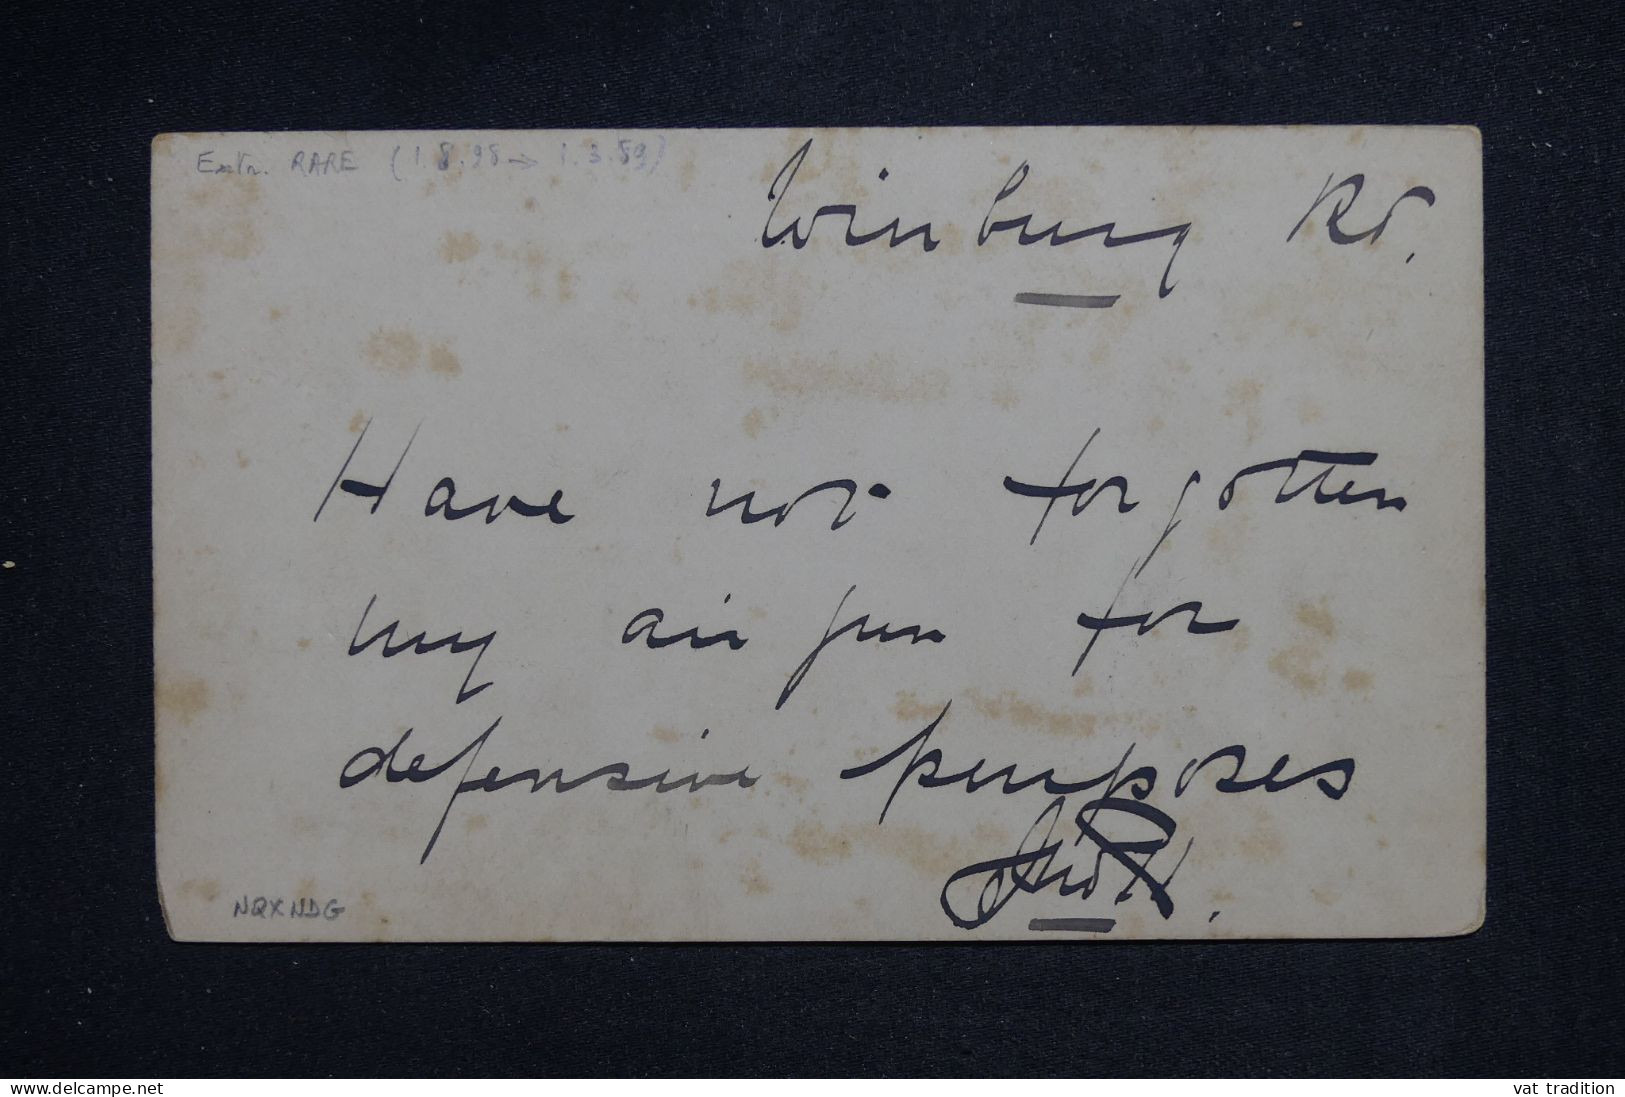 Extr. RARE (1.8.98 → 1.3.89)
Winburg Rd.
Have not forgotten
my air gun for
defensive purposes
NQXNDG
www.delcampe.net
vat tradition